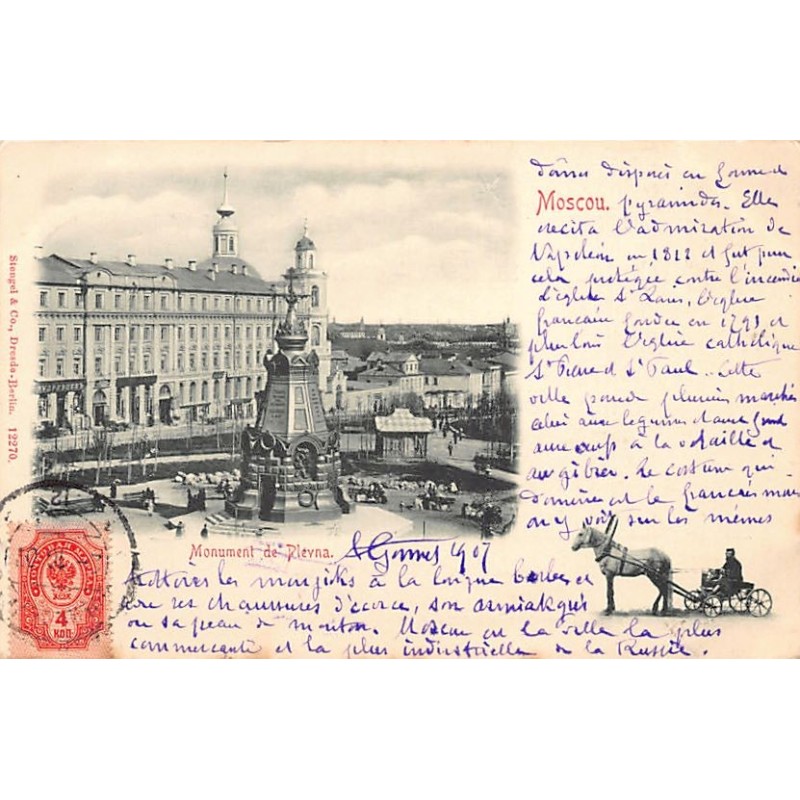 dômes disposés en forme de
Moscou. pyramides. Elle
excita l'admiration de
Napoléon en 1812 et fut pour
cela protégée contre l'incendie
L'église St Louis, l'église
française fondée en 1791 et
plus loin l'église catholique
St Pierre et St Paul. Cette
ville possède plusieurs marchés
celui aux légumes et aux
aux œufs à la volaille et
au gibier. Le costume qui
domine est le français mais
on y voit sur les mêmes
Monument de Plevna.
1907
trottoirs les moujiks à la longue barbe et
avec ses chaussures d'écorce, son armiak gris
ou sa peau de mouton. Moscou est la ville la plus
commerçante et la plus industrielle de la Russie.
Stengel & Co., Dresde-Berlin. 12270.
ПОЧТОВАЯ МАРКА
4
КОП.